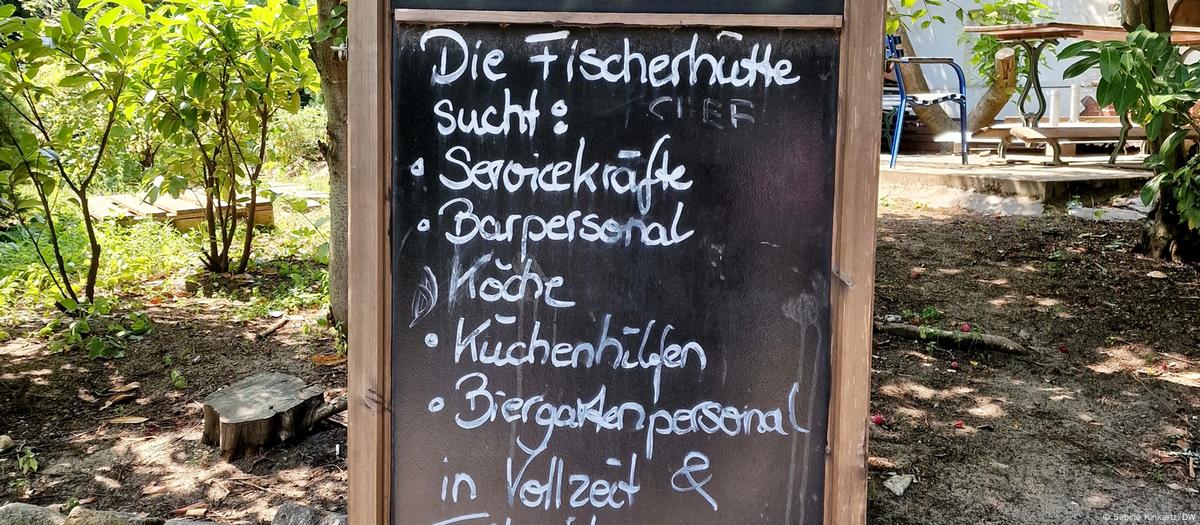 Die Fischerhütte
sucht: CHEF
• Servicekräfte
• Barpersonal
Köche
• Küchenhilfen
• Biergartenpersonal
in Vollzeit &
© Sabine Kinkartz/DW